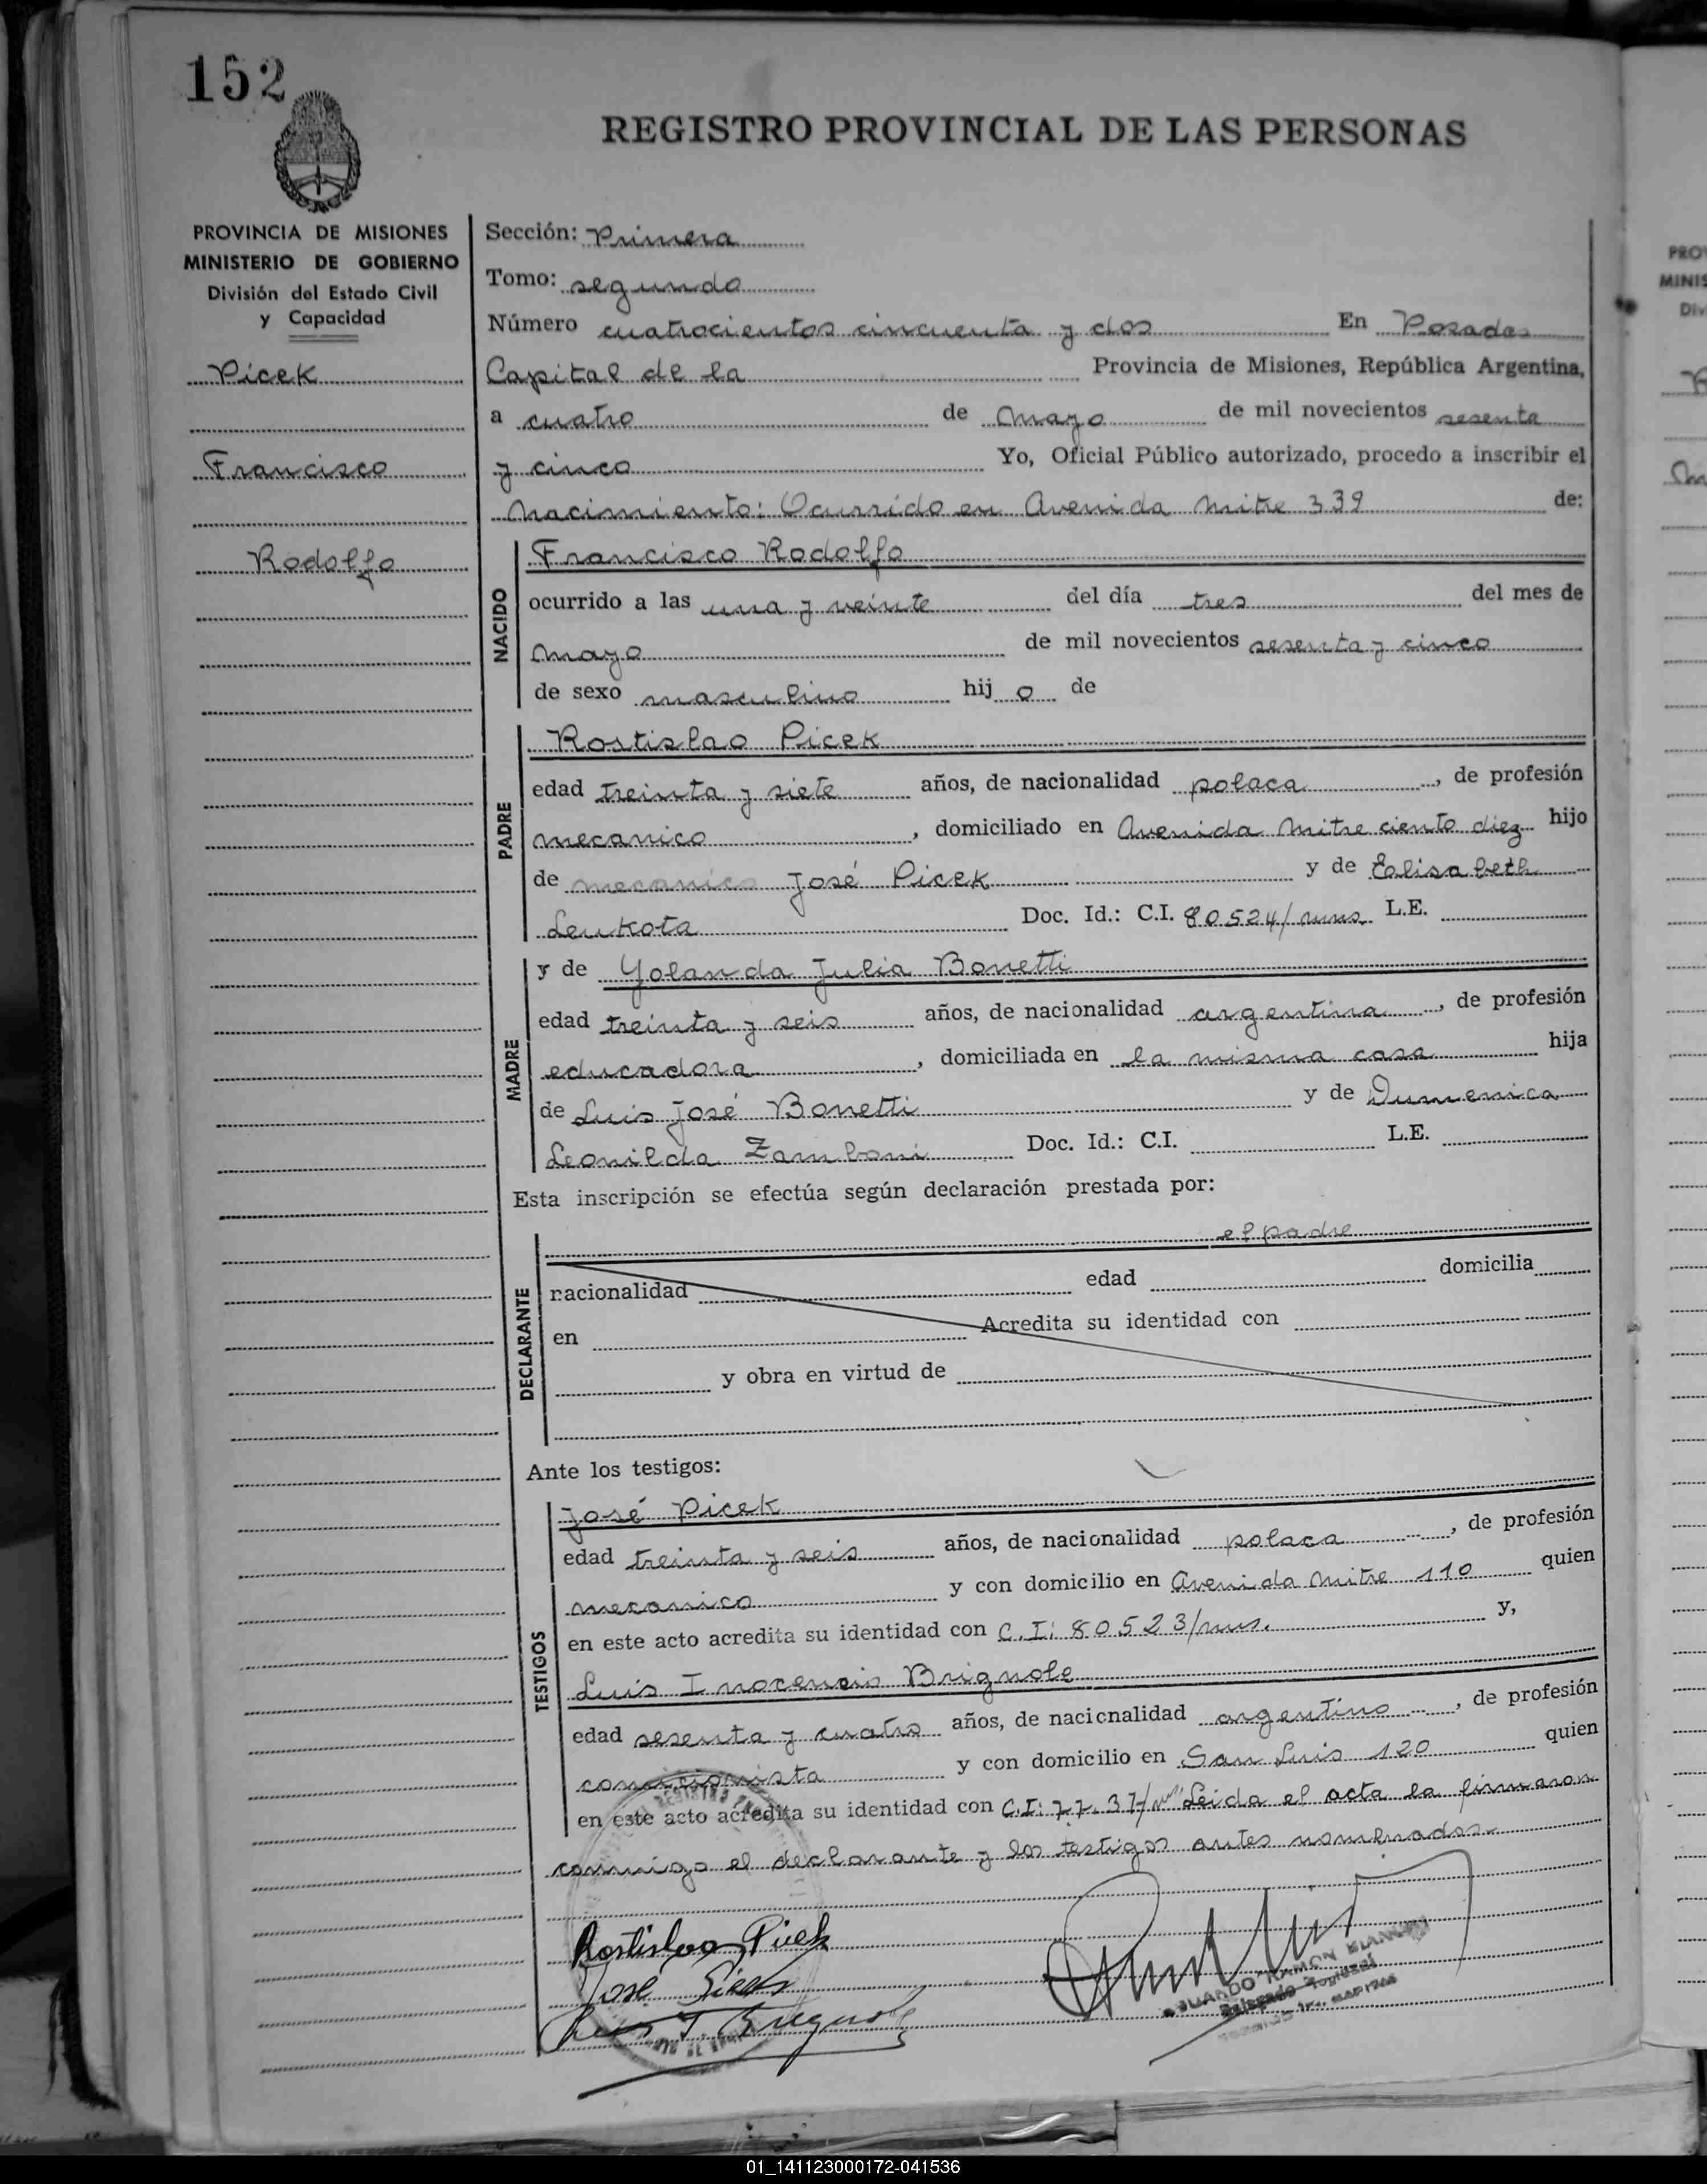 152
REGISTRO PROVINCIAL DE LAS PERSONAS
PROVINCIA DE MISIONES
MINISTERIO DE GOBIERNO
División del Estado Civil
y Capacidad
Picek
Francisco
Rodolfo
Sección: Primera
Tomo: segundo
Número cuatrocientos cincuenta y dos En Posadas
Capital de la Provincia de Misiones, República Argentina,
a cuatro de Mayo de mil novecientos sesenta
y cinco Yo, Oficial Público autorizado, procedo a inscribir el
Nacimiento: Ocurrido en Avenida Mitre 339 de:
NACIDO
Francisco Rodolfo
ocurrido a las una y veinte del día tres del mes de
Mayo de mil novecientos sesenta y cinco
de sexo masculino hij o de
PADRE
Rostislao Picek
edad treinta y siete años, de nacionalidad polaca, de profesión
mecanico, domiciliado en Avenida Mitre ciento diez hijo
de mecanico José Picek y de Eelisabeth
Leukota Doc. Id.: C.I. 80524/mns. L.E.
MADRE
y de Yolanda Julia Bonetti
edad treinta y seis años, de nacionalidad argentina, de profesión
educadora, domiciliada en la misma casa hija
de Luis José Bonetti y de Dumenica
Leonilda Zamboni Doc. Id.: C.I. L.E.
Esta inscripción se efectúa según declaración prestada por:
el padre
DECLARANTE
nacionalidad edad domicilia
en Acredita su identidad con
y obra en virtud de
Ante los testigos:
TESTIGOS
José Picek
edad treinta y seis años, de nacionalidad polaca, de profesión
mecanico y con domicilio en Avenida Mitre 110 quien
en este acto acredita su identidad con C.I: 80523/mns. y,
Luis Inocencio Brignole
edad sesenta y cuatro años, de nacionalidad argentino, de profesión
comicionista y con domicilio en San Luis 120 quien
en este acto acredita su identidad con C.I: 77.37/mns Leida el acta la firmaron
conmigo el declarante y los testigos antes nombrados.
Rostislao Picek
José Picek
Luis I. Brignole
RAMON
Delegado
01_141123000172-041536